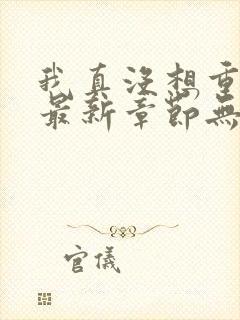 我真没想重
最新章節無
官儀